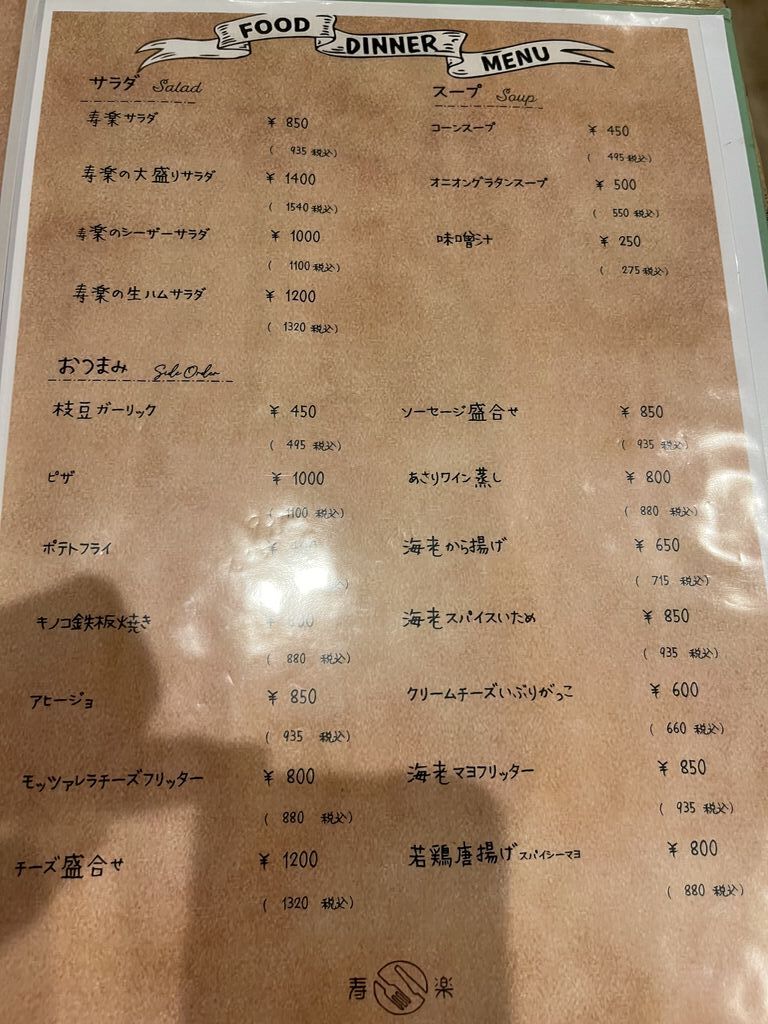 FOOD DINNER MENU
サラダ Salad
寿楽サラダ ¥ 850
( 935 税込)
寿楽の大盛りサラダ ¥ 1400
( 1540 税込)
寿楽のシーザーサラダ ¥ 1000
( 1100 税込)
寿楽の生ハムサラダ ¥ 1200
( 1320 税込)
スープ Soup
コーンスープ ¥ 450
( 495 税込)
オニオングラタンスープ ¥ 500
( 550 税込)
味噌汁 ¥ 250
( 275 税込)
おつまみ Side Order
枝豆ガーリック ¥ 450
( 495 税込)
ピザ ¥ 1000
( 1100 税込)
ポテトフライ
税込)
キノコ鉄板焼き ¥ 800
( 880 税込)
アヒージョ ¥ 850
( 935 税込)
モッツァレラチーズフリッター ¥ 800
( 880 税込)
チーズ盛合せ ¥ 1200
( 1320 税込)
ソーセージ盛合せ ¥ 850
( 935 税込)
あさりワイン蒸し ¥ 800
( 880 税込)
海老から揚げ ¥ 650
( 715 税込)
海老スパイスいため ¥ 850
( 935 税込)
クリームチーズいぶりがっこ ¥ 600
( 660 税込)
海老マヨフリッター ¥ 850
( 935 税込)
若鶏唐揚げスパイシーマヨ ¥ 800
( 880 税込)
寿 楽